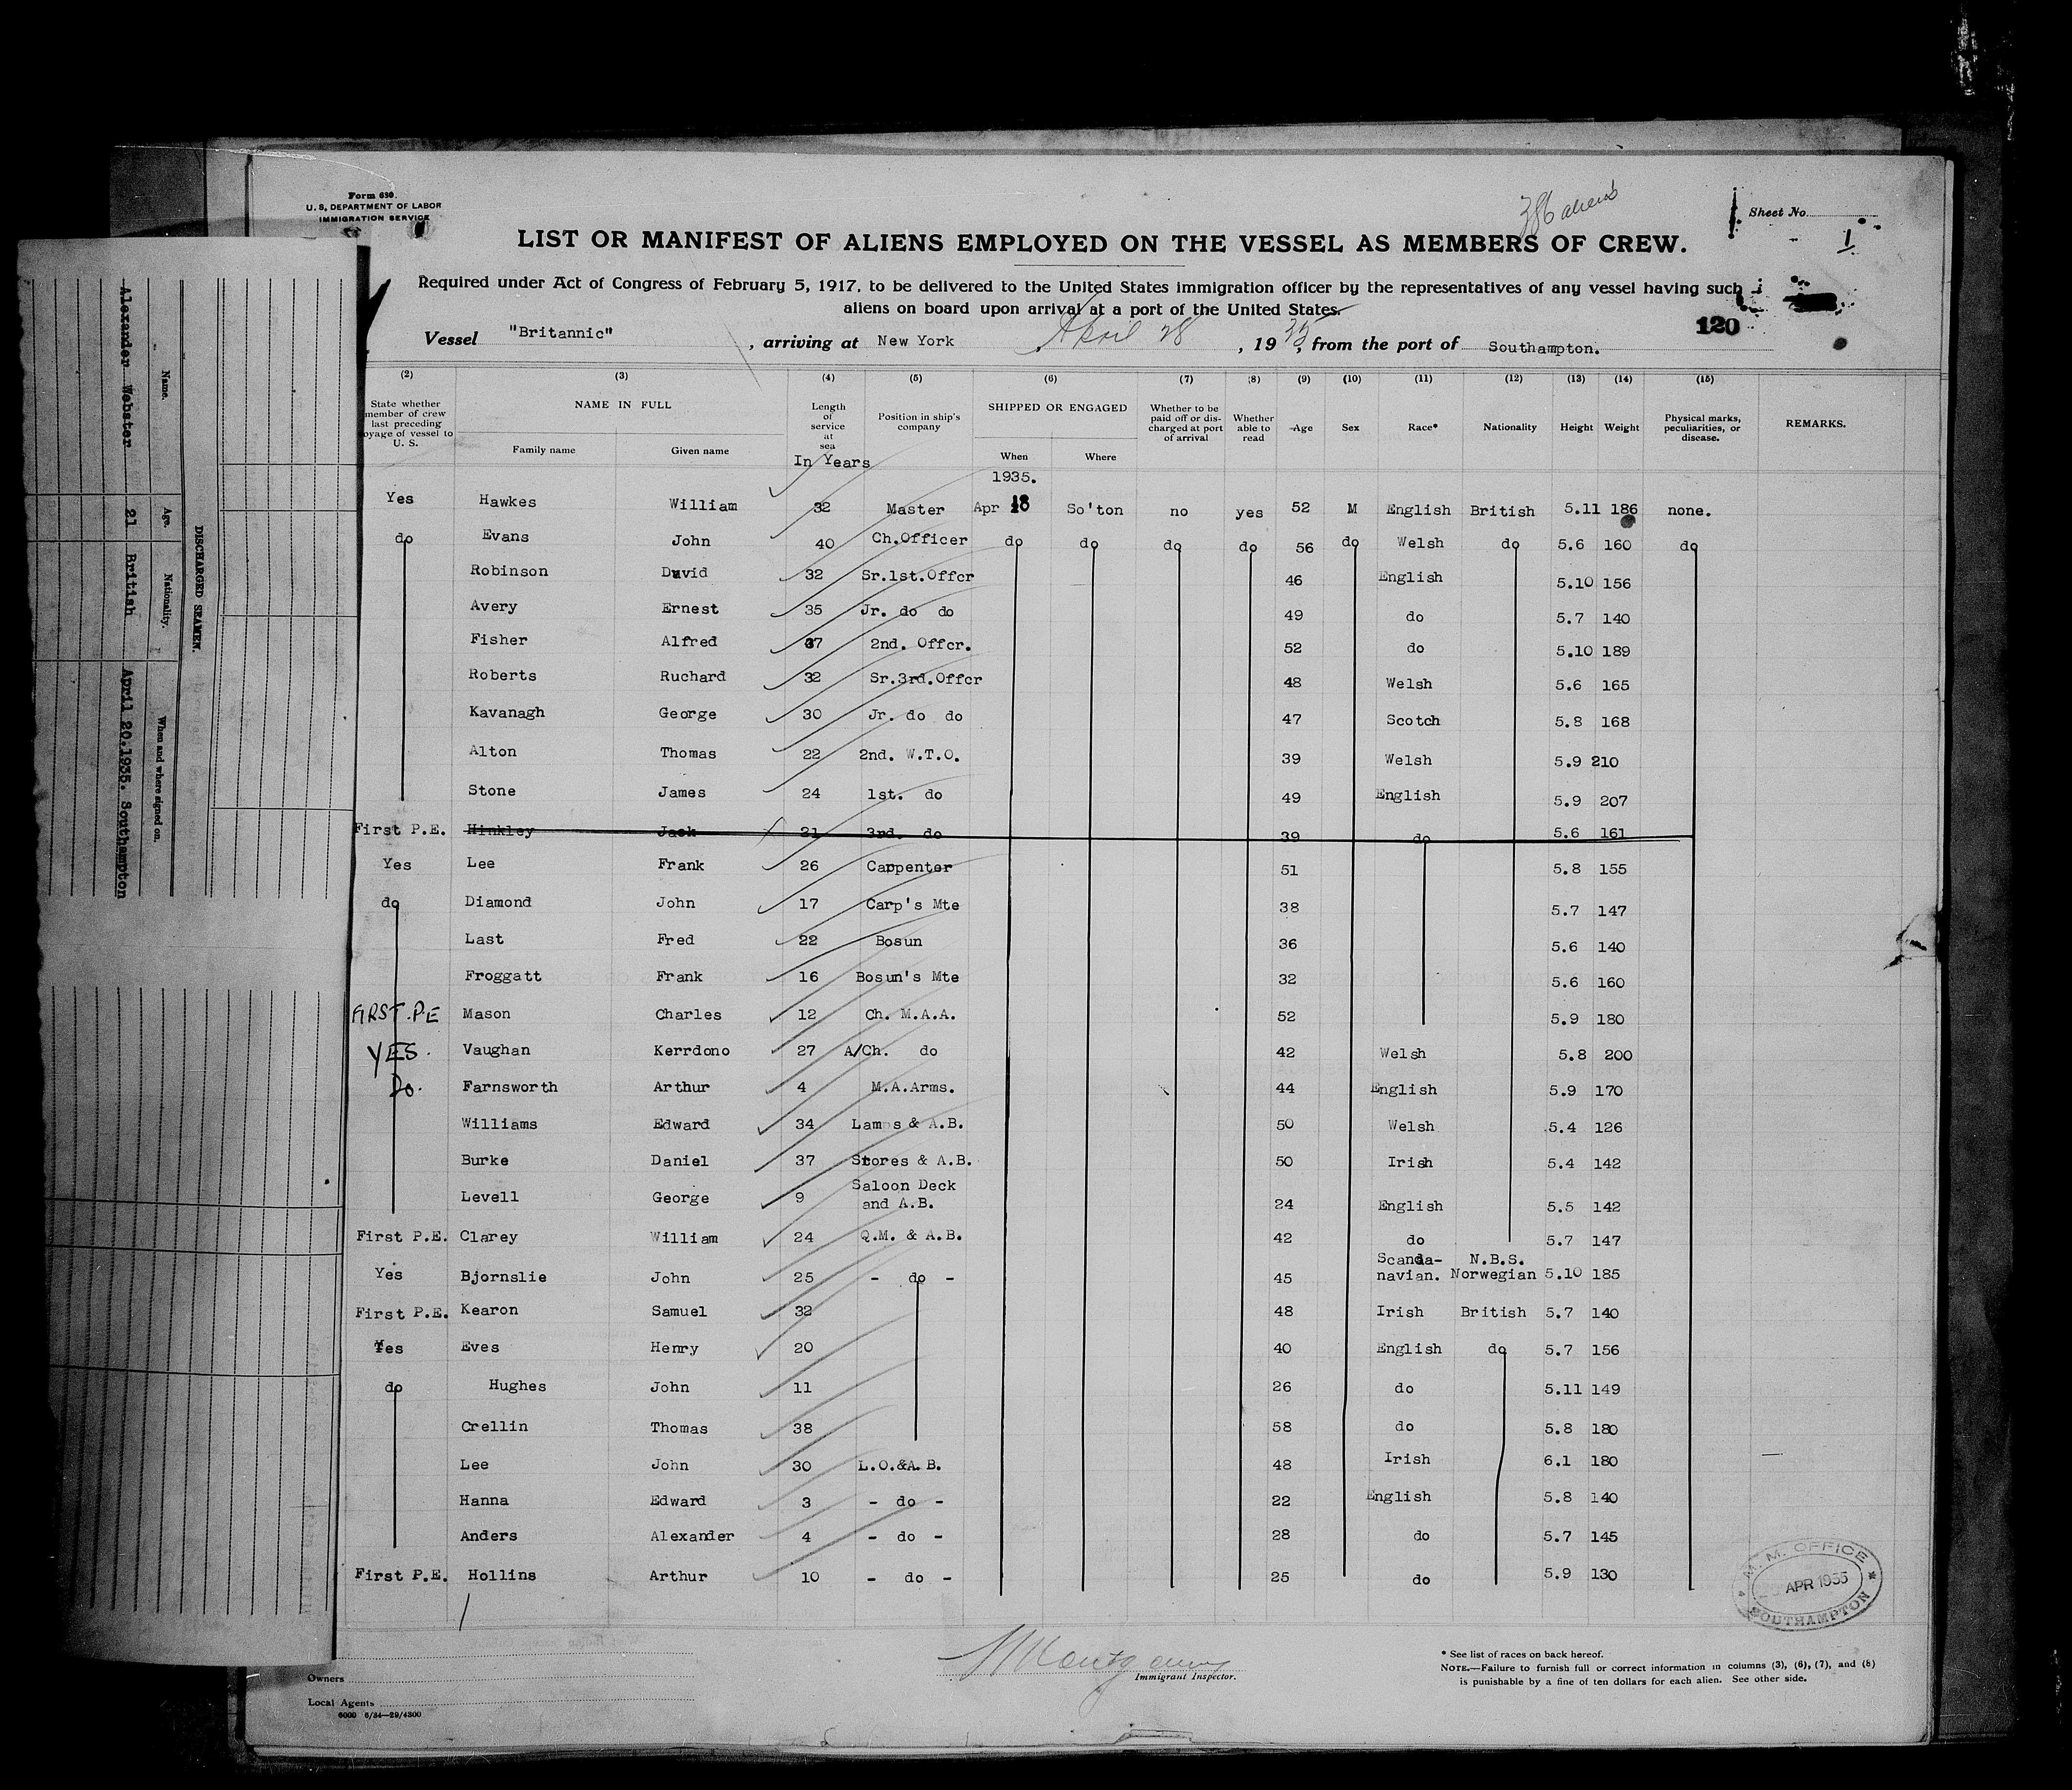 Form 630.
U. S. DEPARTMENT OF LABOR
IMMIGRATION SERVICE
386 aliens
Sheet No. 1
LIST OR MANIFEST OF ALIENS EMPLOYED ON THE VESSEL AS MEMBERS OF CREW.
Required under Act of Congress of February 5, 1917, to be delivered to the United States immigration officer by the representatives of any vessel having such
aliens on board upon arrival at a port of the United States.
120
Vessel "Britannic", arriving at New York, April 28, 1935, from the port of Southampton.
(2) (3) (4) (5) (6) (7) (8) (9) (10) (11) (12) (13) (14) (15)
State whether member of crew last preceding oyage of vessel to U. S.
NAME IN FULL
Family name Given name
Length of service at sea
In Years
Position in ship's company
SHIPPED OR ENGAGED
When Where
Whether to be paid off or discharged at port of arrival
Whether able to read
Age Sex Race* Nationality Height Weight
Physical marks, peculiarities, or disease.
REMARKS.
1935.
Yes Hawkes William 32 Master Apr So'ton no yes 52 M English British 5.11 186 none.
do Evans John 40 Ch.Officer do do do do 56 do Welsh do 5.6 160 do
Robinson David 32 Sr.1st.Offcr 46 English 5.10 156
Avery Ernest 35 Jr. do do 49 do 5.7 140
Fisher Alfred 2nd. Offcr. 52 do 5.10 189
Roberts Ruchard 32 Sr.3rd.Offcr 48 Welsh 5.6 165
Kavanagh George 30 Jr. do do 47 Scotch 5.8 168
Alton Thomas 22 2nd. W.T.O. 39 Welsh 5.9 210
Stone James 24 1st. do 49 English 5.9 207
First P.E. Hinkley Jack 21 3rd. do 39 do 5.6 161
Yes Lee Frank 26 Carpenter 51 5.8 155
do Diamond John 17 Carp's Mte 38 5.7 147
Last Fred 22 Bosun 36 5.6 140
Froggatt Frank 16 Bosun's Mte 32 5.6 160
FIRST.PE Mason Charles 12 Ch. M.A.A. 52 5.9 180
YES. Vaughan Kerrdono 27 A/Ch. do 42 Welsh 5.8 200
Do. Farnsworth Arthur 4 M.A.Arms. 44 English 5.9 170
Williams Edward 34 Lamps & A.B. 50 Welsh 5.4 126
Burke Daniel 37 Stores & A.B. 50 Irish 5.4 142
Levell George 9 Saloon Deck and A.B. 24 English 5.5 142
First P.E. Clarey William 24 Q.M. & A.B. 42 do 5.7 147
Yes Bjornslie John 25 - do - 45 Scanda-navian. N.B.S. Norwegian 5.10 185
First P.E. Kearon Samuel 32 48 Irish British 5.7 140
Yes Eves Henry 20 40 English do 5.7 156
do Hughes John 11 26 do 5.11 149
Crellin Thomas 38 58 do 5.8 180
Lee John 30 L.O.&A.B. 48 Irish 6.1 180
Hanna Edward 3 - do - 22 English 5.8 140
Anders Alexander 4 - do - 28 do 5.7 145
First P.E. Hollins Arthur 10 - do - 25 do 5.9 130
M. M. OFFICE
APR 1935
SOUTHAMPTON
Immigrant Inspector.
Owners
Local Agents
6000 6/34—29/4300
* See list of races on back hereof.
NOTE.—Failure to furnish full or correct information in columns (3), (6), (7), and (8)
is punishable by a fine of ten dollars for each alien. See other side.
DISCHARGED SEAMEN.
Name. Age. Nationality. When and where signed on.
Alexander Webster 21 British April 20.1935. Southampton